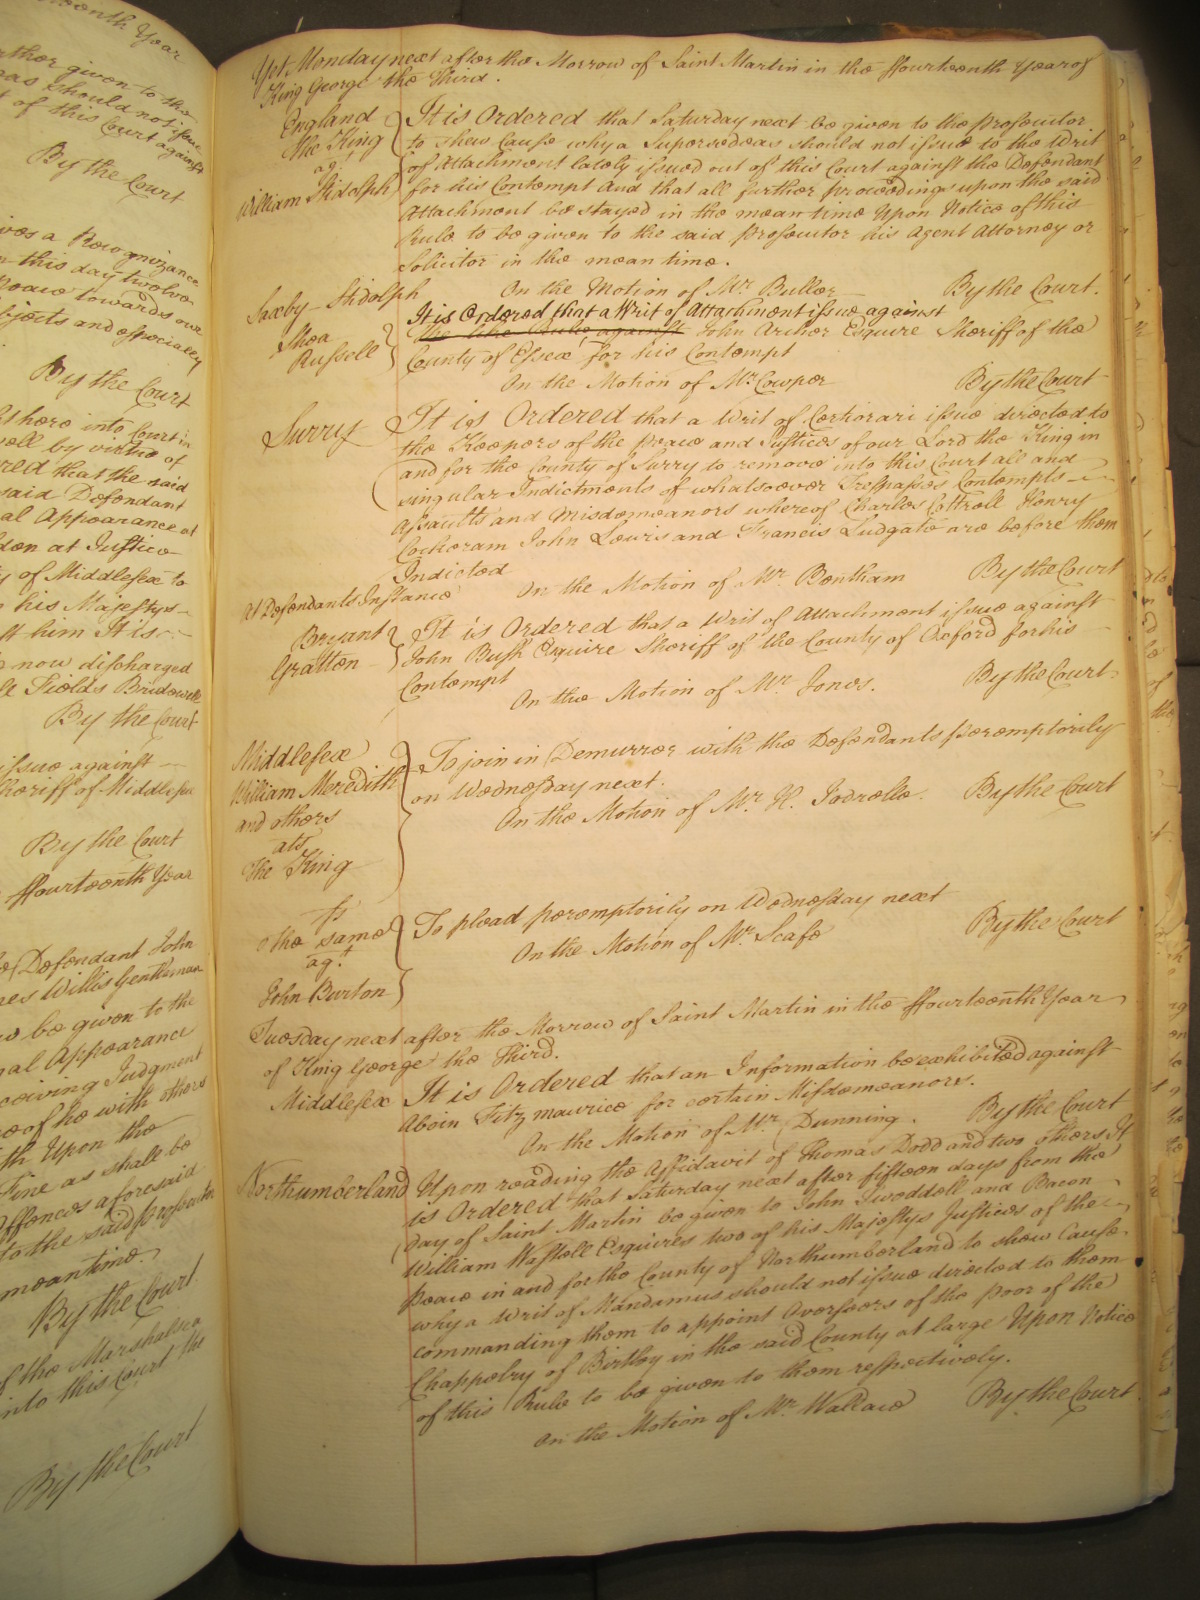 fourteenth Year
further given to the
should not issue
of this Court against
By the Court
a Recognizance
this day twelve
Peace towards our
and especially
By the Court
here into Court in
by virtue of
that the said
said Defendant
Appearance at
at Justice
of Middlesex to
his Majestys
him It is
now discharged
Fields Bridewell
By the Court
issue against
Sheriff of Middlesex
By the Court
ffourteenth Year
Defendant John
Willis Gentleman
be given to the
Appearance
Judgment
he with others
Upon the
Fine as shall be
Offences aforesaid
to the said prosecutor
meantime.
By the Court
of the Marshalsea
into this Court the
By the Court
Yet Monday next after the Morrow of Saint Martin in the ffourteenth Year of
King George the Third.
England
The King
agt
William Stidolph
It is Ordered that Saturday next be given to the prosecutor
to shew Cause why a Supersedeas should not issue to the Writ
of Attachment lately issued out of this Court against the Defendant
for his Contempt And that all further proceedings upon the said
Attachment be stayed in the mean time Upon Notice of this
Rule to be given to the said prosecutor his Agent Attorney or
Solicitor in the mean time.
On the Motion of Mr. Buller By the Court.
Saxby - Stidolph
It is Ordered that a Writ of Attachment issue against
Shea
Russell
The like Rule against John Archer Esquire Sheriff of the
County of Essex for his Contempt
On the Motion of Mr. Cowper By the Court
Surry
It is Ordered that a Writ of Certiorari issue directed to
the Keepers of the peace and Justices of our Lord the King in
and for the County of Surry to remove into this Court all and
singular Indictments of whatsoever Trespasses Contempts
Assaults and Misdemeanors whereof Charles Cottrell Henry
Cocheram John Lewis and Francis Ludgate are before them
Indicted
At Defendants Instance On the Motion of Mr. Bentham By the Court
Bryant
Gratton
It is Ordered that a Writ of Attachment issue against
John Bush Esquire Sheriff of the County of Oxford for his
Contempt
On the Motion of Mr. Jones. By the Court
Middlesex
William Meredith
and others
ats
The King
To join in Demurrer with the Defendants peremptorily
on Wednesday next.
On the Motion of Mr. H. Jodrelle. By the Court
The same
agt
John Burton
To plead peremptorily on Wednesday next
On the Motion of Mr. Scafe By the Court
Tuesday next after the Morrow of Saint Martin in the ffourteenth Year
of King George the Third.
Middlesex It is Ordered that an Information be exhibited against
Aboin Fitzmaurice for certain Misdemeanors.
On the Motion of Mr. Dunning. By the Court
Northumberland Upon reading the Affidavit of Thomas Dodd and two others It
is Ordered that Saturday next after fifteen days from the
day of Saint Martin be given to John Tweddell and Bacon
William Wastell Esquires two of his Majestys Justices of the
peace in and for the County of Northumberland to shew Cause
why a Writ of Mandamus should not issue directed to them
commanding them to appoint Overseers of the poor of the
Chappelry of Birtley in the said County at large Upon Notice
of this Rule to be given to them respectively.
On the Motion of Mr. Wallace By the Court